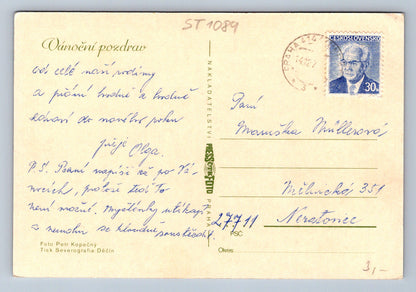 ST 1089
Vánoční pozdrav
od celé naší rodiny
a přání hodně a hodně
zdraví do nového roku
přeje Olga.
P.S. Psaní napíši až po Vá-
nocích, protože teď to
není možné. Myšlenky utíkají
a nemohu se kloudně soustředit.
Foto Petr Kopečný
Tisk Severografia Děčín
NAKLADATELSTVÍ
PRESSFOTO
PRAHA
PRAHA
ČESKOSLOVENSKO
30h
Paní
Maruška Müllerová
Mělnická 351
27711 Neratovice
PSČ
Okres
3,-